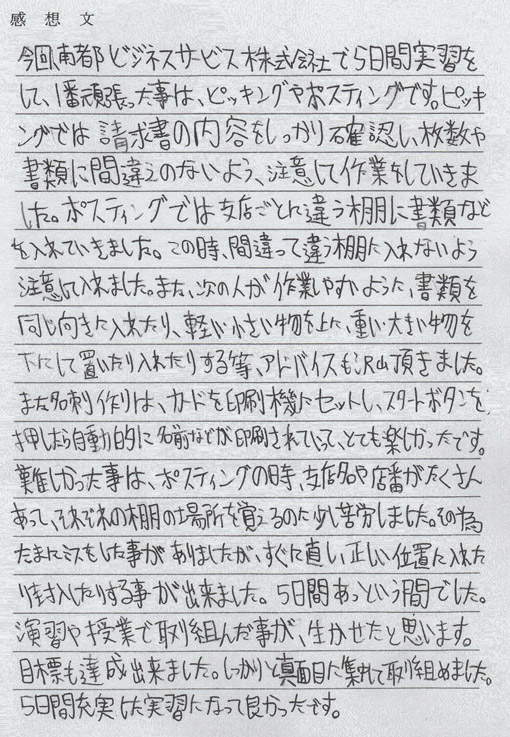 感想文
今回、南都ビジネスサービス株式会社で5日間実習を
して、1番頑張った事は、ピッキングやポスティングです。ピッキ
ングでは請求書の内容をしっかり確認し、枚数や
書類に間違えのないよう、注意して作業をしていきま
した。ポスティングでは支店ごとに違う棚に書類など
を入れていきました。この時、間違って違う棚に入れないよう
注意して入れました。また、次の人が作業しやすいように、書類を
同じ向きに入れたり、軽い小さい物を上に、重い大きい物を
下にして置いたり入れたりする等、アドバイスも沢山頂きました。
また名刺作りは、カードを印刷機にセットし、スタートボタンを
押したら自動的に名前などが印刷されていって、とても楽しかったです。
難しかった事は、ポスティングの時、支店名や店番がたくさん
あって、それぞれの棚の場所を覚えるのに少し苦労しました。その為
たまにミスをした事がありましたが、すぐに直し、正しい位置に入れた
り封入したりする事が出来ました。5日間あっという間でした。
演習や授業で取り組んだ事が、生かせたと思います。
目標も達成出来ました。しっかりと真面目に集中して取り組めました。
5日間充実した実習になって良かったです。